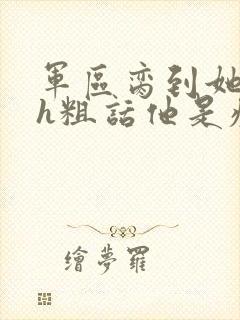 軍區脔到她
h粗話他是
繪夢羅